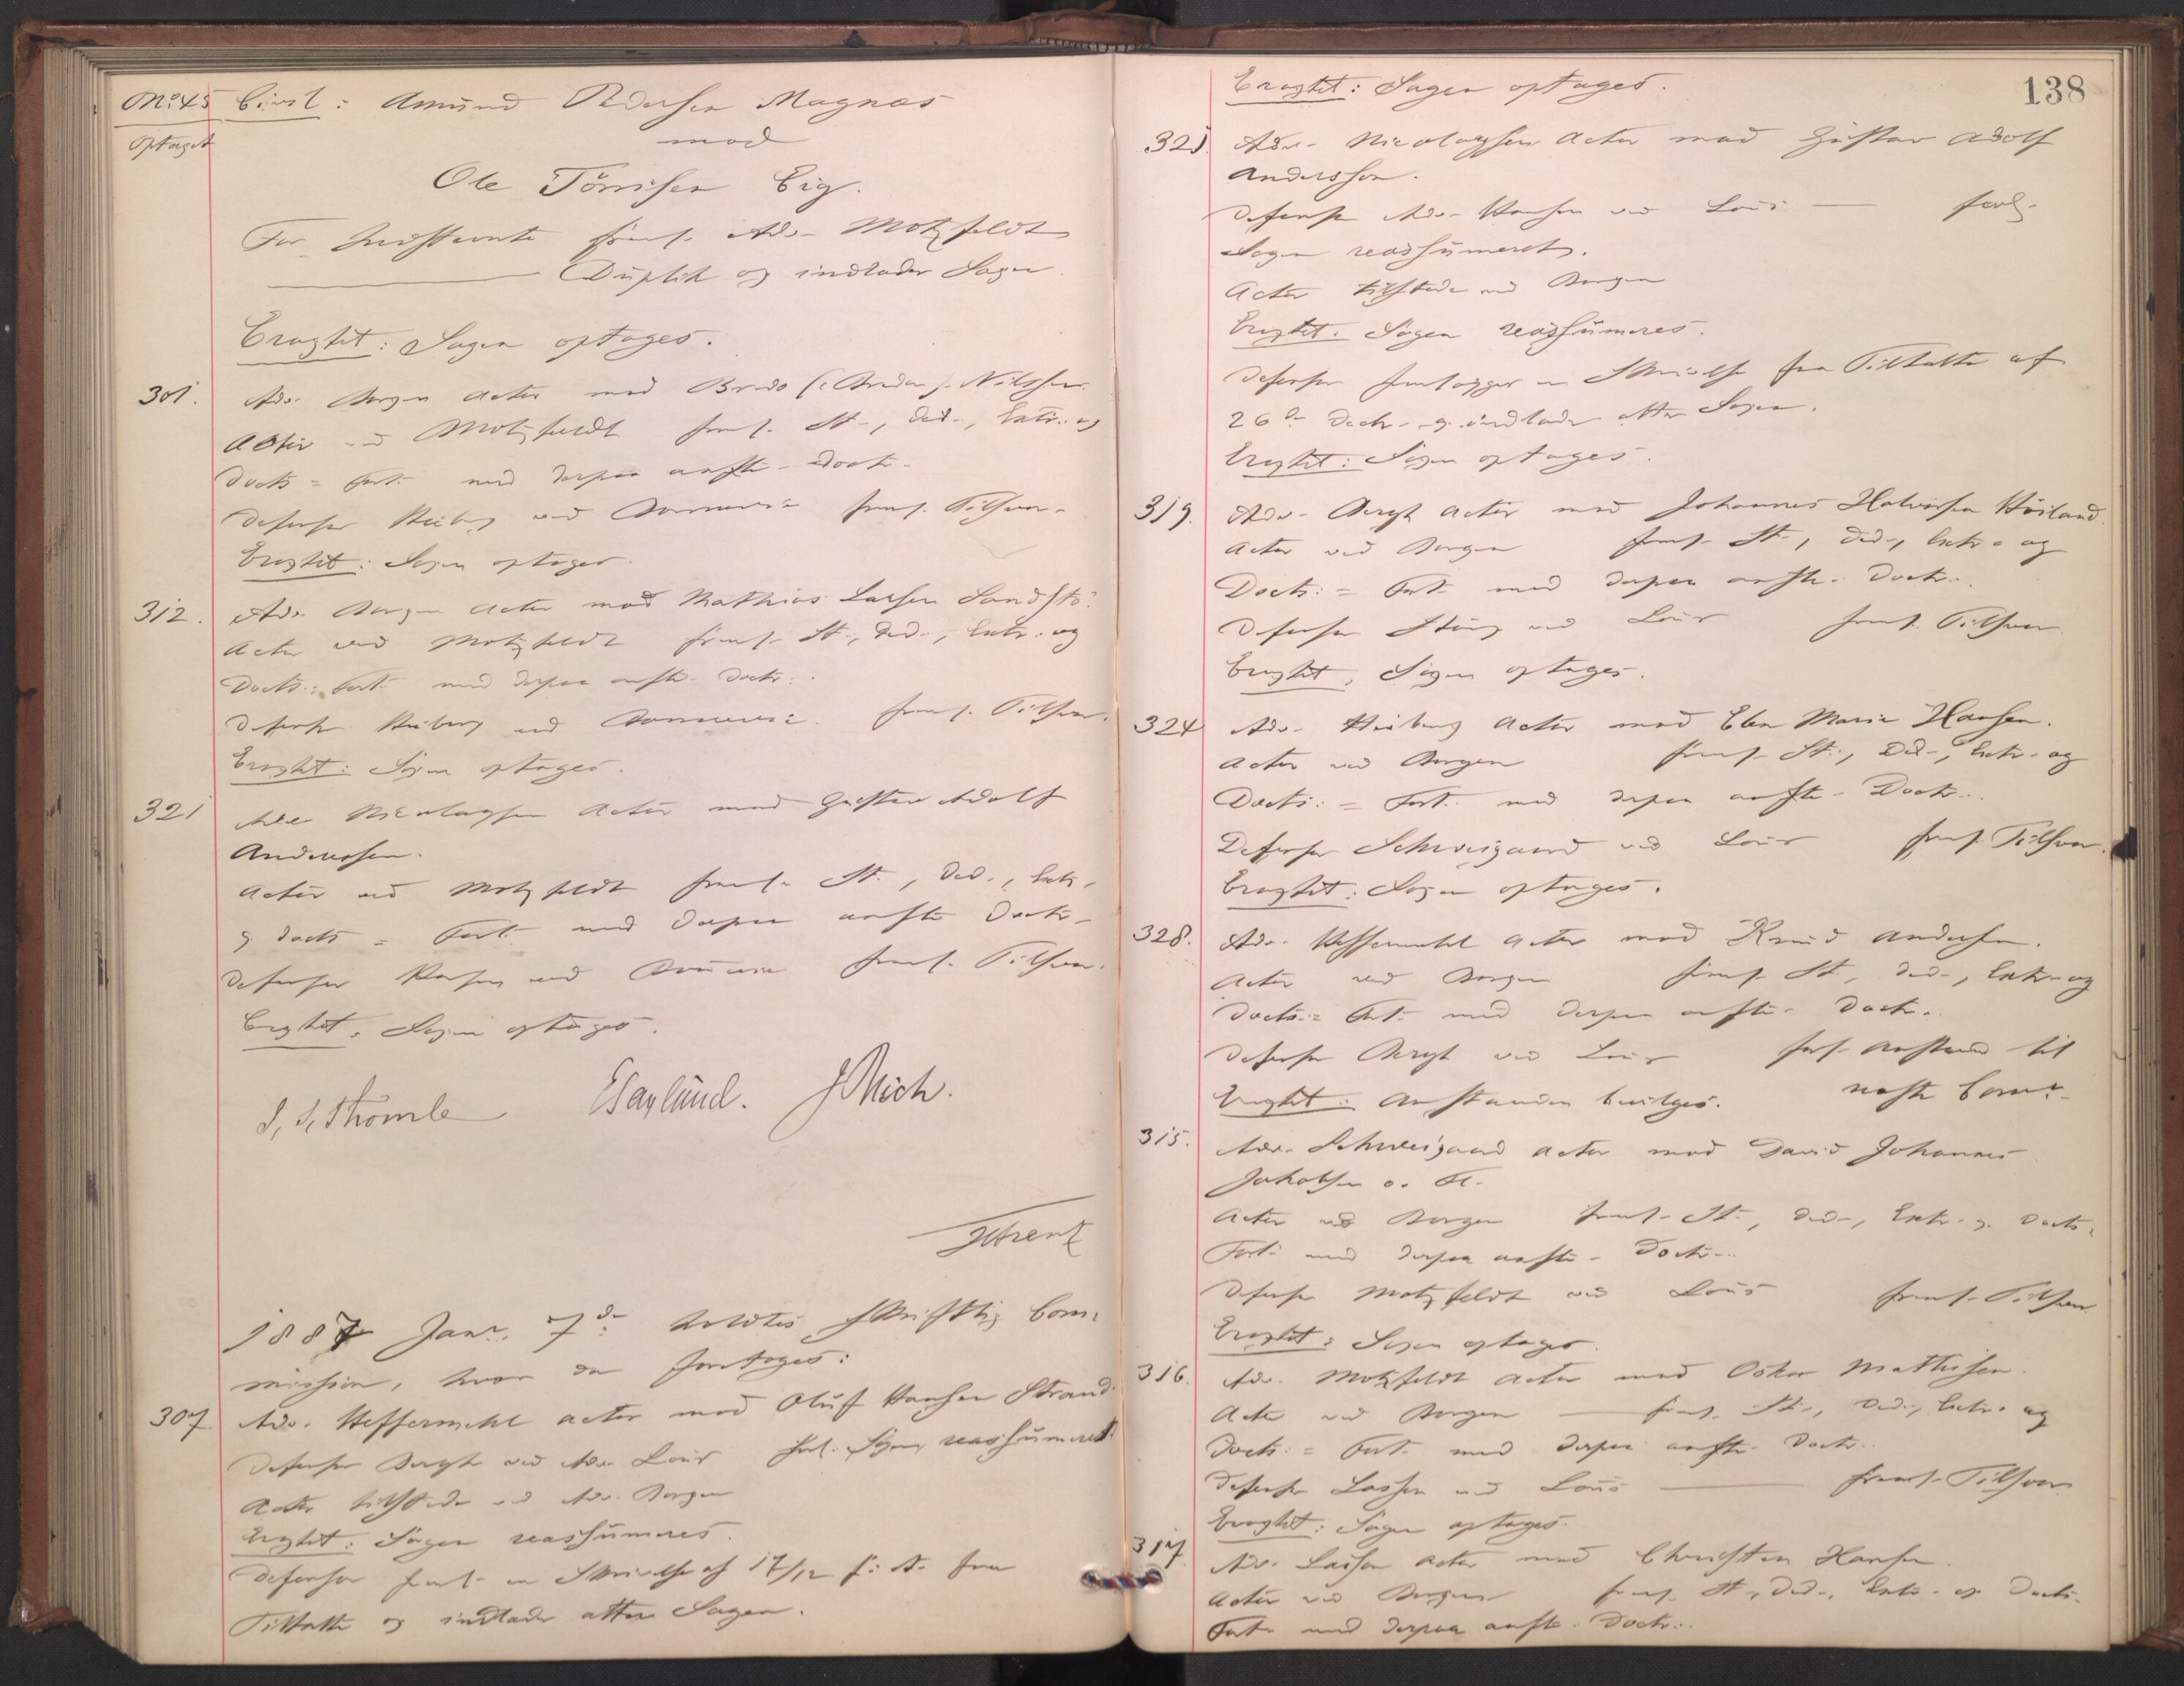 No 45 Civil: Amund Pedersen Magnæs
Optaget
mod
Ole Tönnisen Eig.
For Indstevnte freml. Adv. Motzfeldt
Duplik og indlader Sagen.
Eragtet: Sagen optages.
301. Adv. Borgen Actor mod Brede (: Bredan) Nilssen
Actor ved Motzfeldt freml. St., Ded., Extr. og
Docts = Fort. med derpaa anfte. Doctr.
Defensor Heiberg ved freml. Tilsvar.
Eragtet: Sagen optages.
312. Adv. Borgen Actor mod Mathias Larsen Sandstö.
Actor ved Motzfeldt freml. St., Ded., Extr. og
Docts: Fort. med derpaa anfte. Doctr.
Defensor Heiberg ved freml. Tilsvar.
Eragtet: Sagen optages.
321 Adv. Nicolaysen Actor mod Gustav Adolf
Anderssen.
Actor ved Motzfeldt freml. St., Ded., Extr.
og Docts = Fort. med derpaa anfte Doctr.
Defensor ved freml. Tilsvar.
Eragtet: Sagen optages.
S. S. Thömle ESaylund. JMich.
1887 Janr. 7de holdtes skriftlig Com-
mission, hvor da foretoges:
307. Adv. Heffermehl actor mod Oluf Hansen Strand.
Defensor Bergh ved Adv. Lous forl. Sagen reassumeret.
Actor tilstede ved Adv. Borgen
Eragtet: Sagen reassumeres.
Defensor freml. en Skrivelse af 17/12 f: A. fra
Tiltalte og indlader atter Sagen.
138
Eragtet: Sagen optages.
321. Adv. Nicolaysen Actor mod Gustav Adolf
Andersson.
Defensor Adv. Hansen ved Lous — forl.
Sagen reassumeret.
Actor tilstede ved Borgen
Eragtet: Sagen reassumeres.
Defensor fremlægger en Skrivelse fra Tiltalte af
26de Decbr. og indlader atter Sagen.
Eragtet: Sagen optages.
319. Adv. Bergh Actor mod Johannes Halvorsen Höiland.
Actor ved Borgen freml. St., Ded., Extr. og
Docts: = Fort. med derpaa anfte. Doctr.
Defensor ved Lous freml. Tilsvar
Eragtet, Sagen optages.
324 Adv. Heiberg Actor mod Elen Marie Hansen.
Actor ved Borgen freml. St., Ded., Extr. og
Docts: = Fort. med derpaa anfte. Doctr.
Defensor Schweigaard ved Lous freml. Tilsvar.
Eragtet: Sagen optages.
328. Adv. Heffermehl Actor mod Knud Andersen.
Actor ved Borgen freml. St., Ded., Extr. og
Docts: = Fort. med derpaa anfte. Doctr.
Defensor Bergh ved Lous forl. Anstand til
Eragtet: Anstanden bevilges. næste Comn.
315. Adv. Schweigaard actor mod David Johannes
Jakobsen o. Fl.
Actor ved Borgen freml. St., Ded., Extr. og Docts.
Fort. med derpaa anfte. Doctr.
Defensor Motzfeldt ved Lous freml. Tilsvar
Eragtet: Sagen optages.
316. Adv. Motzfeldt Actor mod Oskar Mathisen.
Actor ved Borgen — freml. St., Ded., Extr. og
Docts: = Fort. med derpaa anfte. Doctr.
Defensor Lassen ved Lous — freml. Tilsvar
Eragtet: Sagen optages.
317. Adv. Lassen Actor mod Christen Hansen.
Actor ved Borgen freml. St., Ded., Extr. og Docts.
Fort. med derpaa anfte. Doctr.